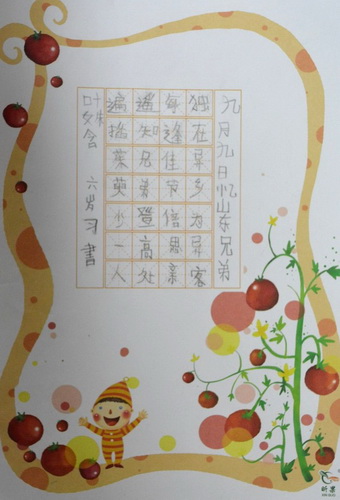 九月九日忆山东兄弟
独在异乡为异客
每逢佳节倍思亲
遥知兄弟登高处
遍插茱萸少一人
叶 六岁习書